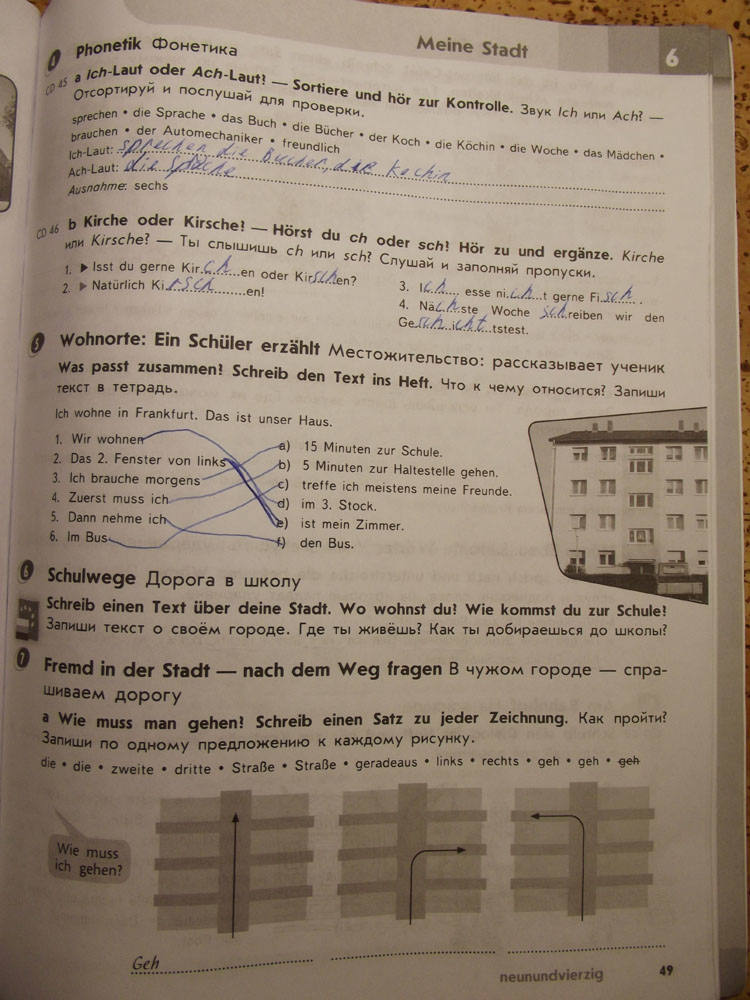 Meine Stadt
6
4 Phonetik Фонетика
CD 45
a Ich-Laut oder Ach-Laut? — Sortiere und hör zur Kontrolle. Звук Ich или Ach? —
Отсортируй и послушай для проверки.
sprechen • die Sprache • das Buch • die Bücher • der Koch • die Köchin • die Woche • das Mädchen •
brauchen • der Automechaniker • freundlich
Ich-Laut: sprechen die Bücher, die Kochin
Ach-Laut: die Sprache
Ausnahme: sechs
CD 46
b Kirche oder Kirsche? — Hörst du ch oder sch? Hör zu und ergänze. Kirche
или Kirsche? — Ты слышишь ch или sch? Слушай и заполняй пропуски.
1. ▶ Isst du gerne Kir ch en oder Kir sch en?
2. ▶ Natürlich Ki rsch en!
3. I ch esse ni ch t gerne Fi sch .
4. Nä ch ste Woche sch reiben wir den
Ge sch icht tstest.
5 Wohnorte: Ein Schüler erzählt Местожительство: рассказывает ученик
Was passt zusammen? Schreib den Text ins Heft. Что к чему относится? Запиши
текст в тетрадь.
Ich wohne in Frankfurt. Das ist unser Haus.
1. Wir wohnen
2. Das 2. Fenster von links
3. Ich brauche morgens
4. Zuerst muss ich
5. Dann nehme ich
6. Im Bus
a) 15 Minuten zur Schule.
b) 5 Minuten zur Haltestelle gehen.
c) treffe ich meistens meine Freunde.
d) im 3. Stock.
e) ist mein Zimmer.
f) den Bus.
6 Schulwege Дорога в школу
Schreib einen Text über deine Stadt. Wo wohnst du? Wie kommst du zur Schule?
Запиши текст о своём городе. Где ты живёшь? Как ты добираешься до школы?
7 Fremd in der Stadt — nach dem Weg fragen В чужом городе — спра-
шиваем дорогу
a Wie muss man gehen? Schreib einen Satz zu jeder Zeichnung. Как пройти?
Запиши по одному предложению к каждому рисунку.
die • die • zweite • dritte • Straße • Straße • geradeaus • links • rechts • geh • geh • geh
Wie muss
ich gehen?
Geh
neunundvierzig 49